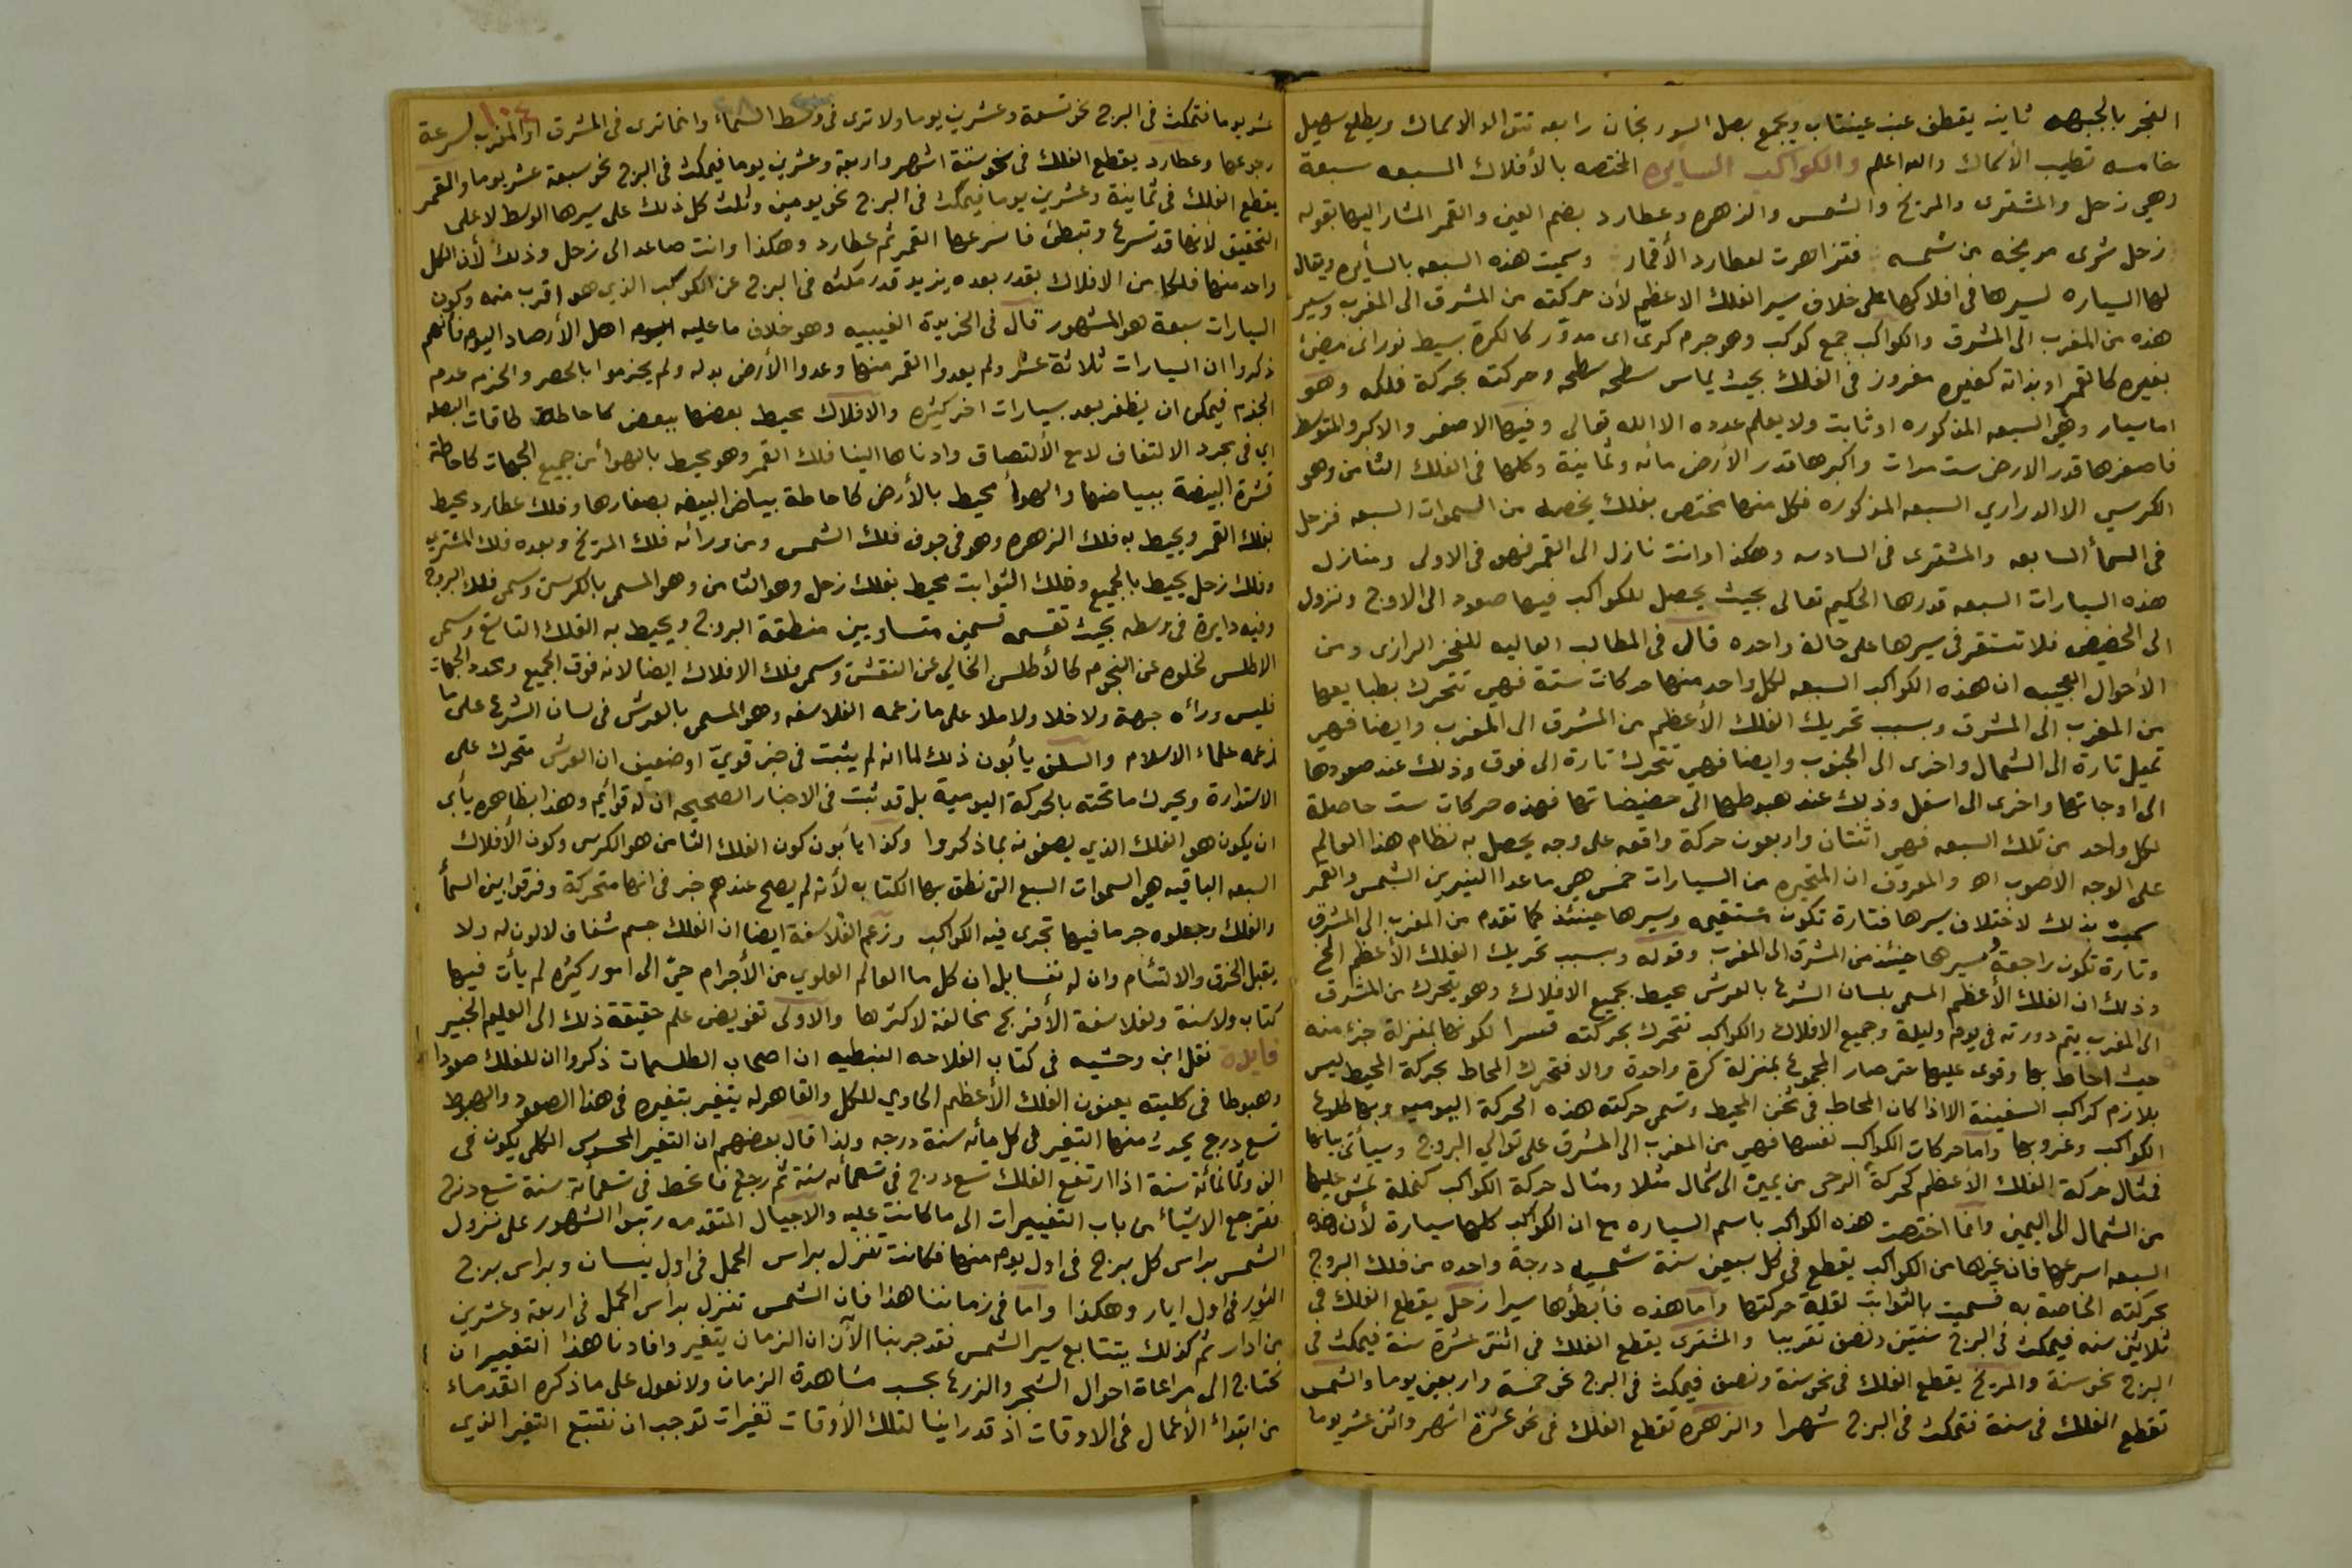 الفجر بالجبهه ثانيه يقطف عنب عينتاب ويجمع بصل السورنجان رابعه تتوالد الاسماك ويطلع سهيل
خامسه تطيب الأسماك والله اعلم والكواكب السأيره المختصه بالأفلاك السبعه سبعة
وهي زحل والمشترى والمريخ والشمس والزهره وعطارد بضم العين والقمر المشار اليها بقوله
زحل شرى مريخه من شمسه فتزاهرت لعطارد الأقمار وسميت هذه السبعه بالسأيره ويقال
لها السياره لسيرها فى افلاكها على خلاف سير الفلك الاعظم لأن حركته من المشرق الى المغرب وسير
هذه من المغرب الى المشرق والكواكب جمع كوكب وهو جرم كرىّ اى مدوّر كالكرة بسيط نورانى مضئ
بغيره كالقمر او بذاته كغيره مغروز فى الفلك بحيث يماس سطحه سطحه وحركته بحركة فلكه وهو
اما سيار وهى السبعه المذكوره او ثابت ولا يعلم عدده الا الله تعالى وفيها الاصغر والاكبر والمتوسط
فاصغرها قدر الارض ست مرات واكبرها قدر الأرض مائه وثمانية وكلها فى الفلك الثامن وهو
الكرسي الا الدراري السبعه المذكوره فكل منها مختص بفلك يخصه من السموات السبعه فزحل
فى السمأ السابعه والمشترى فى السادسه وهكذا وانت نازل الى القمر فهو فى الاولى ومنازل
هذه السيارات السبعه قدرها الحكيم تعالى بحيث يحصل للكواكب فيها صعود الى الاوج ونزول
الى الحضيض فلا تستقر فى سيرها على حالة واحده قال فى المطالب العاليه للفخر الرازى ومن
الأحوال العجيبه ان هذه الكواكب السبعه لكل واحد منها حركات ستة فهي تتحرك بطبايعها
من المغرب الى المشرق وبسبب تحريك الفلك الأعظم من المشرق الى المغرب وايضا فهي
تميل تارة الى الشمال واخرى الى الجنوب وايضا فهي تتحرك تارة الى فوق وذلك عند صعودها
الى اوجاتها واخرى الى اسفل وذلك عند هبوطها الى حضيضاتها فهذه حركات ست حاصلة
لكل واحد من تلك السبعه فهى اثنتان واربعون حركة واقعه على وجه يحصل به نظام هذا العالم
على الوجه الأصوب اه والمعروف ان المتحيره من السيارات خمس هي ماعدا النيرين الشمس والقمر
سميت بذلك لاختلاف سيرها فتارة تكون مستقيمه وسيرها حينئذ كما تقدم من المغرب الى المشرق
وتارة تكون راجعة وسيرها حينئذ من المشرق الى المغرب وقوله وبسبب تحريك الفلك الأعظم الخ
وذلك ان الفلك الأعظم المسمى بلسان الشرع بالعرش محيط بجميع الافلاك وهو يتحرك من المشرق
الى المغرب يتم دورته فى يوم وليلة وجميع الافلاك والكواكب تتحرك بحركته قسرا لكونها بمنزلة جزء منه
حيث احاط بها وقوى عليها حتى صار المجموع بمنزلة كرة واحدة والا فتحرك المحاط بحركة المحيط ليس
بلازم كراكب السفينة الا اذا كان المحاط فى ثخن المحيط وتسمى حركته هذه الحركة اليوميه وبها طلوع
الكواكب وغروبها واما حركات الكواكب نفسها فهى من المغرب الى المشرق على توالي البروج وسيأتى بيانها
فمثال حركة الفلك الأعظم كحركة الرحى من يمين الى شمال مثلا ومثال حركة الكواكب كنملة تمشى عليها
من الشمال الى اليمين وانما اختصت هذه الكواكب باسم السياره مع ان الكواكب كلها سيارة لأن هذه
السبعه اسرعها فان غيرها من الكواكب يقطع فى كل سبعين سنة شمسيه درجة واحده من فلك البروج
بحركته الخاصة به فسميت بالثوابت لقلة حركتها وأما هذه فأبطؤها سيرا زحل يقطع الفلك فى
ثلاثين سنه فيمكث فى البرج سنتين ونصف تقريبا والمشترى يقطع الفلك فى اثنتى عشرة سنة فيمكث فى
البرج نحو سنة والمريخ يقطع الفلك فى نحو سنة ونصف فيمكث فى البرج نحو خمسة واربعين يوما والشمس
تقطع الفلك فى سنة فتمكث فى البرج شهرا والزهره تقطع الفلك فى نحو عشرة اشهر واثنى عشر يوما
عشر يوما فتمكث فى البرج نحو تسعة وعشرين يوما ولا ترى فى وسط السماء وانما ترى فى المشرق او المغرب لسرعة
رجوعها وعطارد يقطع الفلك فى نحو ستة اشهر واربعة وعشرين يوما فيمكث فى البرج نحو سبعة عشر يوما والقمر
يقطع الفلك فى ثمانية وعشرين يوما فيمكث فى البرج نحو يومين وثلث كل ذلك على سيرها الوسط لا على
التحقيق لأنها قد تسرع وتبطئ فأسرعها القمر ثم عطارد وهكذا وانت صاعد الى زحل وذلك لأن لكل
واحد منها فلكا من الافلاك بقدر بعده يزيد قدر مكثه فى البرج عن الكوكب الذى هو اقرب منه وكون
السيارات سبعة هو المشهور قال فى الخريدة الغيبيه وهو خلاف ما عليه اهل الأرصاد اليوم فأنهم
ذكروا ان السيارات ثلاثة عشر ولم يعدوا القمر منها وعدوا الأرض بدله ولم يجزموا بالحصر والحزم عدم
الجزم فيمكن ان يظفر بعد بسيارات اخر كثيره والافلاك محيط بعضها ببعض كاحاطة طاقات البصله
اي فى مجرد الالتفاف لا مع الألتصاق وادناها الينا فلك القمر وهو محيط بالهوأ من جميع الجهات كاحاطة
قشرة البيضة ببياضها والهوأ محيط بالأرض كاحاطة بياض البيضه بصفارها وفلك عطارد محيط
بفلك القمر ويحيط به فلك الزهره وهو فى جوف فلك الشمس ومن ورائه فلك المريخ وبعده فلك المشترى
وفلك زحل يحيط بالجميع وفلك الثوابت محيط بفلك زحل وهو الثامن وهو المسمى بالكرسى وسمى فلك البروج
وفيه دايرة فى وسطه بحيث تقسمه قسمين متساويين منطقة البروج ويحيط به الفلك التاسع وسمى
الاطلس لخلوه عن النجوم كالأطلس الخالي عن النقش وسمى فلك الافلاك ايضا لانه فوق الجميع ومحدد الجهات
فليس وراءه جهة ولا خلا ولا ملا على ما زعمه الفلاسفه وهو المسمى بالعرش فى لسان الشرع على ما
زعمه علماء الاسلام والسلف يأبون ذلك لما انه لم يثبت فى خبر قويّ او ضعيف ان العرش متحرك على
الاستدارة ويحرك ما تحته بالحركة اليومية بل قد ثبت فى الاخبار الصحيحه ان له قوائم وهذا بظاهره يأبى
ان يكون هو الفلك الذي يصفونه بما ذكروا وكذا يأبون كون الفلك الثامن هو الكرسى وكون الأفلاك
السبعه الباقيه هي السموات السبع التى نطق بها الكتاب لأنه لم يصح عندهم خبر فى انها متحركة وفرقوا بين السمأ
والفلك وجعلوه جرما فيها تجرى فيه الكواكب وزعم الفلاسفة ايضا ان الفلك جسم شفاف لا لون له ولا
يقبل الخرق والالتئام وان له نفسا بل ان كل ما العالم العلوي من الأجرام حيّ الى امور كثيره لم يأت فيها
كتاب ولا سنة وفلاسفة الأفرنج مخالفة لاكثرها والاولى تفويض علم حقيقة ذلك الى العليم الخبير
فايدة نقل ابن وحشيه فى كتاب الفلاحه النبطيه ان اصحاب الطلسمات ذكروا ان للفلك صعودا
وهبوطا فى كليته يعنون الفلك الأعظم الحاوي للكل والقاهر له يتغير بتغيره فى هذا الصعود والهبوط
تسع درج يحدث منها التغير فى كل مائه سنة درجه ولذا قال بعضهم ان التغير المحسوس الكلى يكون فى
الف وثمانمائة سنة اذا ارتفع الفلك تسع درج فى تسعمائه سنة ثم رجع فانحط فى تسعمائة سنة تسع درج
فترجع الاشيأ من باب التغييرات الى ما كانت عليه والاجيال المتقدمه رتبوا الشهور على نزول
الشمس براس كل برج فى اول يوم منها فكانت تنزل براس الحمل فى اول نيسان وبراس برج
الثور فى اول ايار وهكذا واما فى زماننا هذا فان الشمس تنزل برأس الحمل فى اربعة وعشرين
من اذار ثم كذلك يتتابع سير الشمس فقد جربنا الآن ان الزمان يتغير وافادنا هذا التغيير ان
نحتاج الى مراعاة احوال الشجر والزرع بحسب مشاهدة الزمان ولا نعول على ما ذكره القدماء
من ابتدأ الأعمال فى الاوقات اذ قد راينا لتلك الأوقات تغيرات توجب ان نتتبع التغير الذي